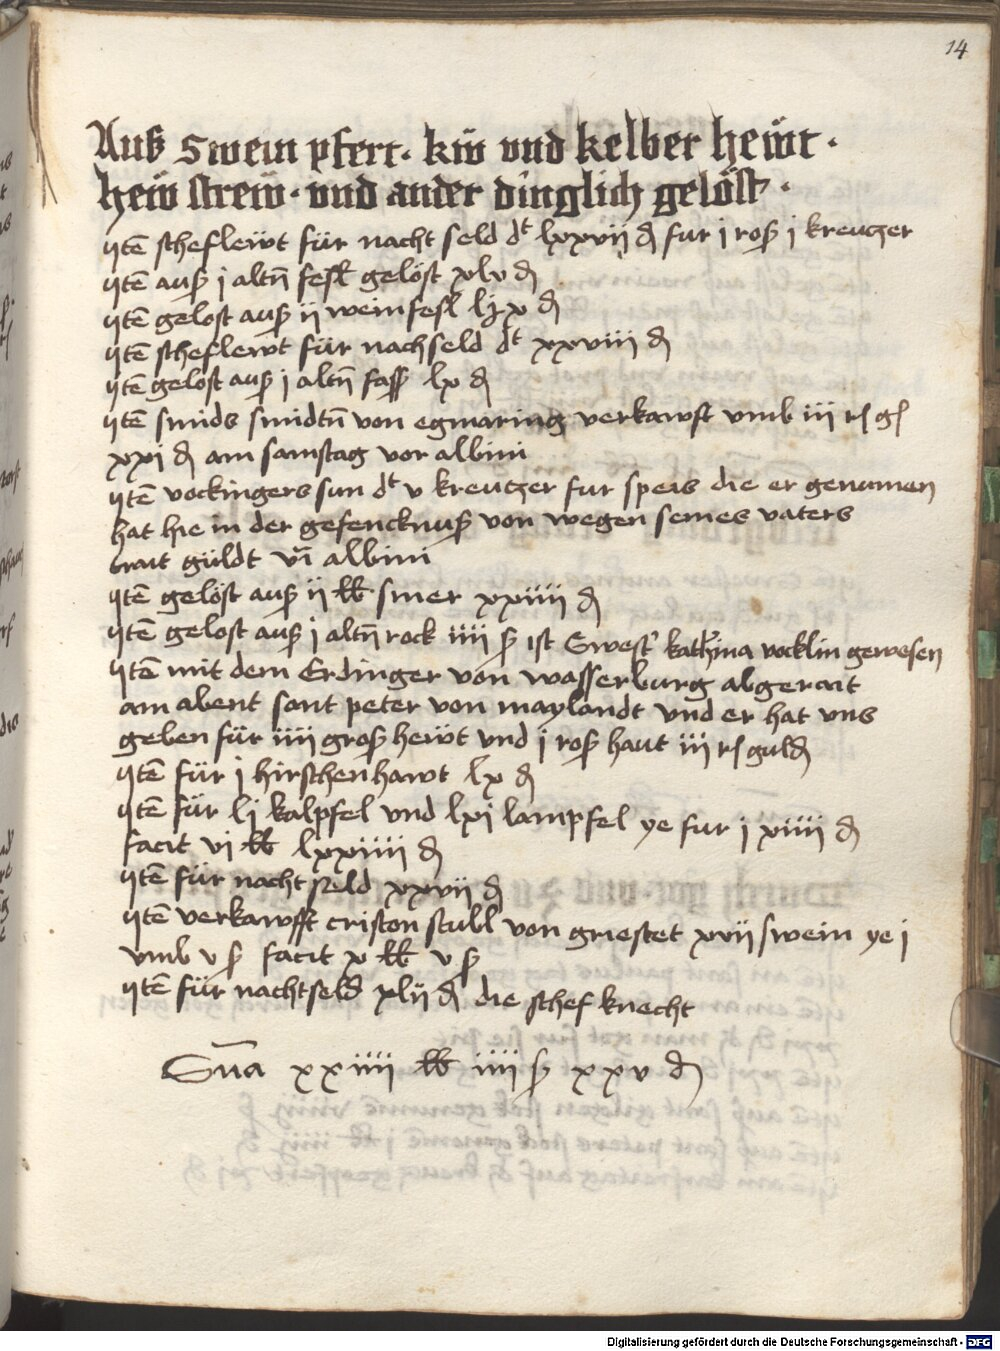 14
Auß swein pfert · kw̄ vnd kelber hëwt ·
hëw strëw · vnd ander dinglich gelöst ·
Itē scheflëwt für nacht seld dt lxxvij ₰ fur j roß j kreutzer
Itē auß j altn̄ fesl gelöst xlv ₰
Itē gelost auß ij weinfesl ₰
Itē scheflëwt für nachseld dt xxviij ₰
Itē gelost auß j altn̄ faß lx ₰
Itē smids smidtn̄ von egmaring verkawft vmb iij
xxi ₰ am samstag vor albini
Itē vockingers sun dt v kreutzer fur speis die er genumen
hat hie in der gefencknuß von wegen seines vaters
trait güldt albini
Itē gelöst auß ij ℔ smer xxiiij ₰
Itē gelost auß j altn̄ rock iiij ß ist Swest' kath'ina vocklin gewesen
Itē mit dem Erdinger von wasserburg abgerait
am abent sant peter von maylandt vnd er hat vns
geben für iiij groß hëwt vnd j roß haut iij guld
Itē für j hirschenhawt lx ₰
Itē für lj kalpfel vnd lxj lampfel ye fur j xiiij ₰
facit vj ℔ lxxiiij ₰
Itē für nacht seld xxvij ₰
Itē verkawfft criston stubl von griestet xvij swein ye j
vmb v ß facit x ℔ v ß
Itē für nachtseld xlij ₰ die schef knecht
Sūa xxiiij ℔ iiij ß xxv ₰
Digitalisierung gefördert durch die Deutsche Forschungsgemeinschaft - DFG